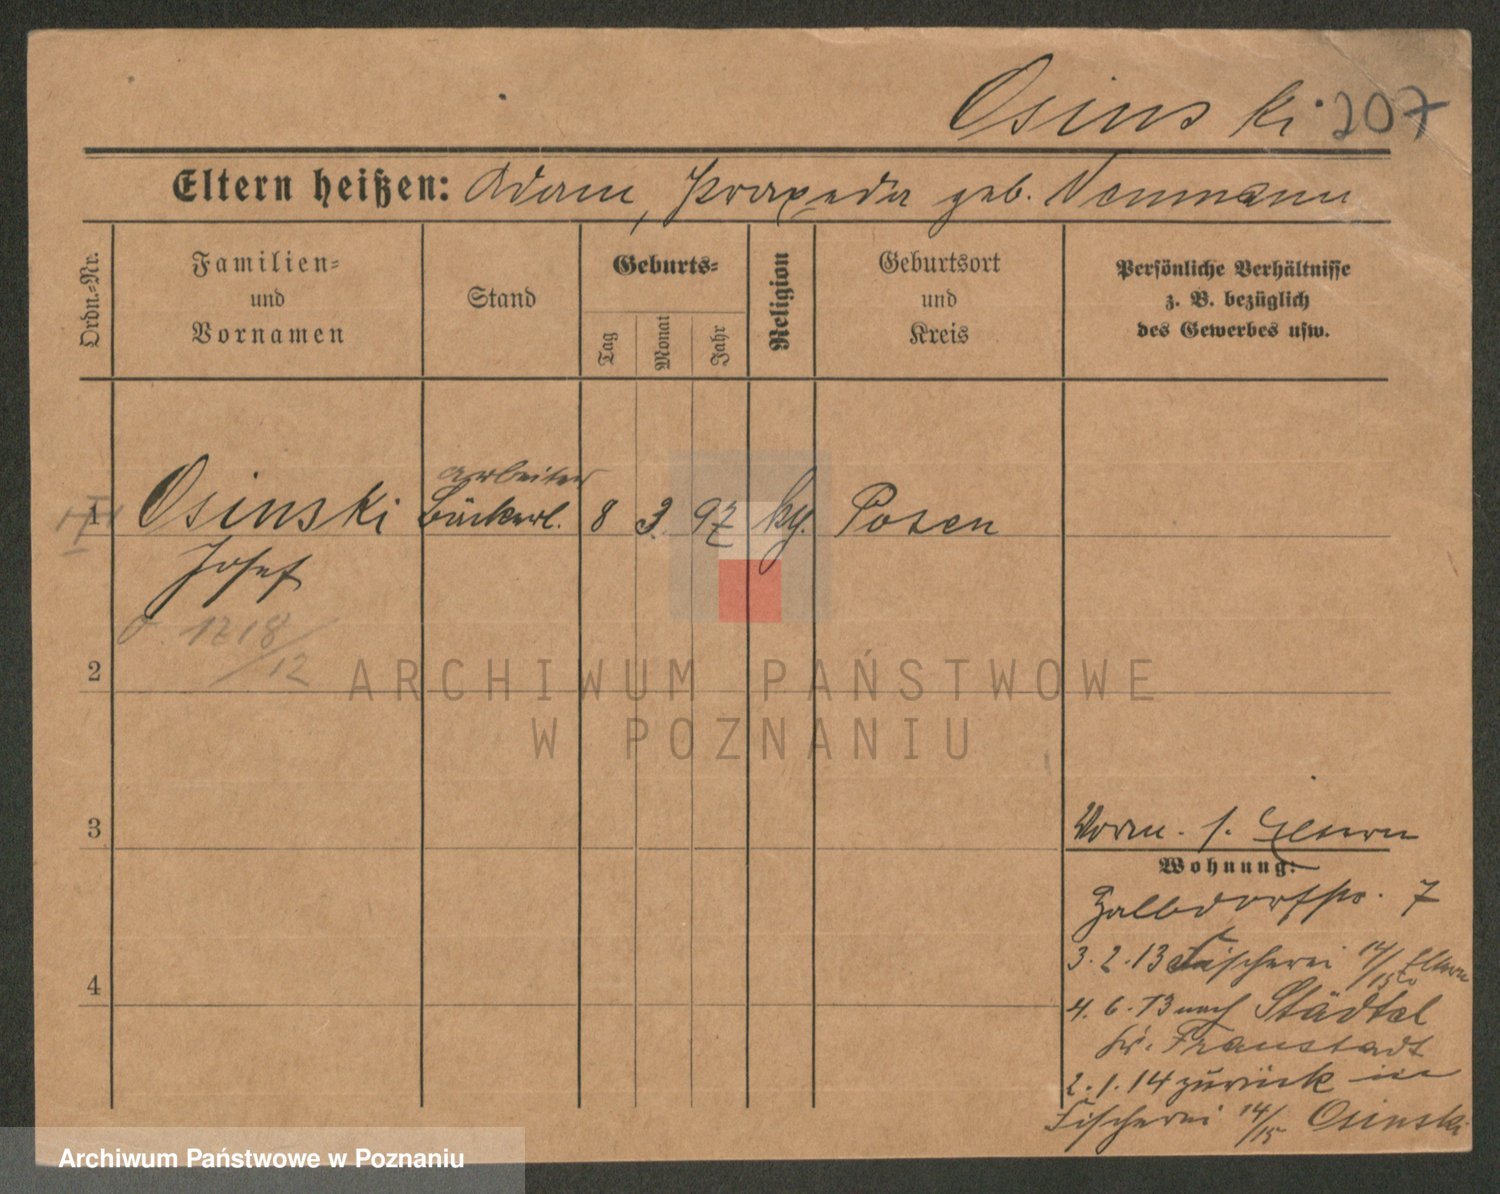 Osinski 207
Eltern heißen: Adam, Praxeda geb. Neumann
Ordn.-Nr.
Familien-
und
Vornamen
Stand
Geburts-
Tag
Monat
Jahr
Religion
Geburtsort
und
Kreis
Persönliche Verhältnisse
z. B. bezüglich
des Gewerbes usw.
arbeiter
1 Osinski 8 3. 97 Posen
Josef
1718/12
2
ARCHIWUM PAŃSTWOWE
W POZNANIU
3
s. Eltern
Wohnung:
7
3. 2. 13 Fischerei 14/15 Eltern
4
4. 6. 13 nach Städtel
Kr. Fraustadt
2. 1. 14 zurück in
Fischerei 14/15 Osinski
Archiwum Państwowe w Poznaniu